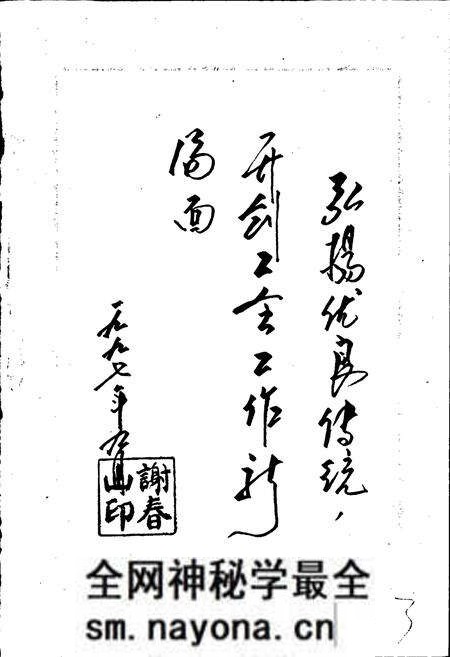 弘揚优良傳统，
开创工会工作新
局面
一九九七年九月
謝春
山印
全网神秘学最全
sm.nayona.cn
3